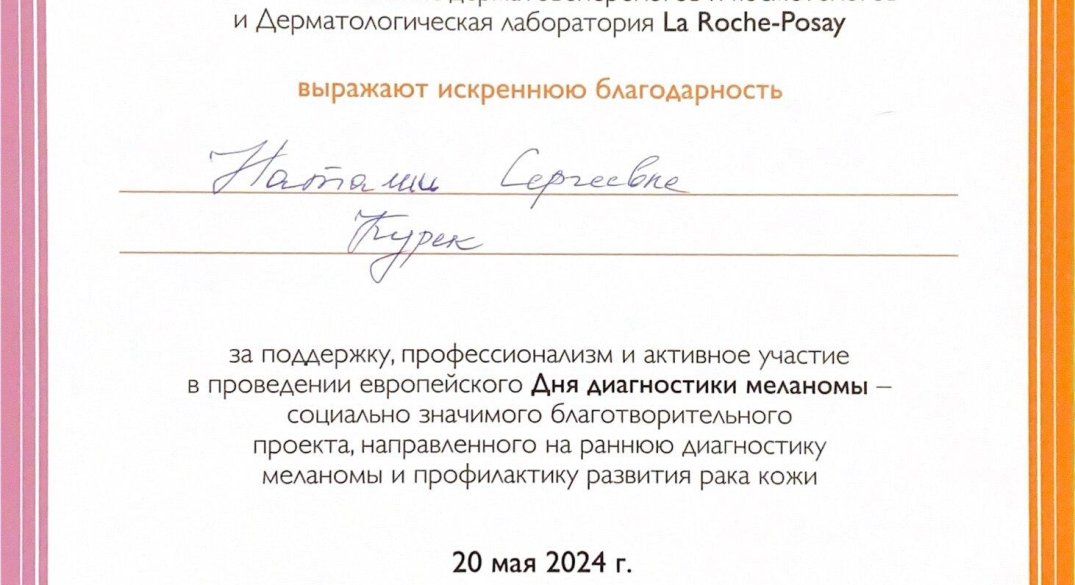 дерматовенерологов и косметологов
и Дерматологическая лаборатория La Roche-Posay
выражают искреннюю благодарность
Наталии Сергеевне
Курек
за поддержку, профессионализм и активное участие
в проведении европейского Дня диагностики меланомы –
социально значимого благотворительного
проекта, направленного на раннюю диагностику
меланомы и профилактику развития рака кожи
20 мая 2024 г.